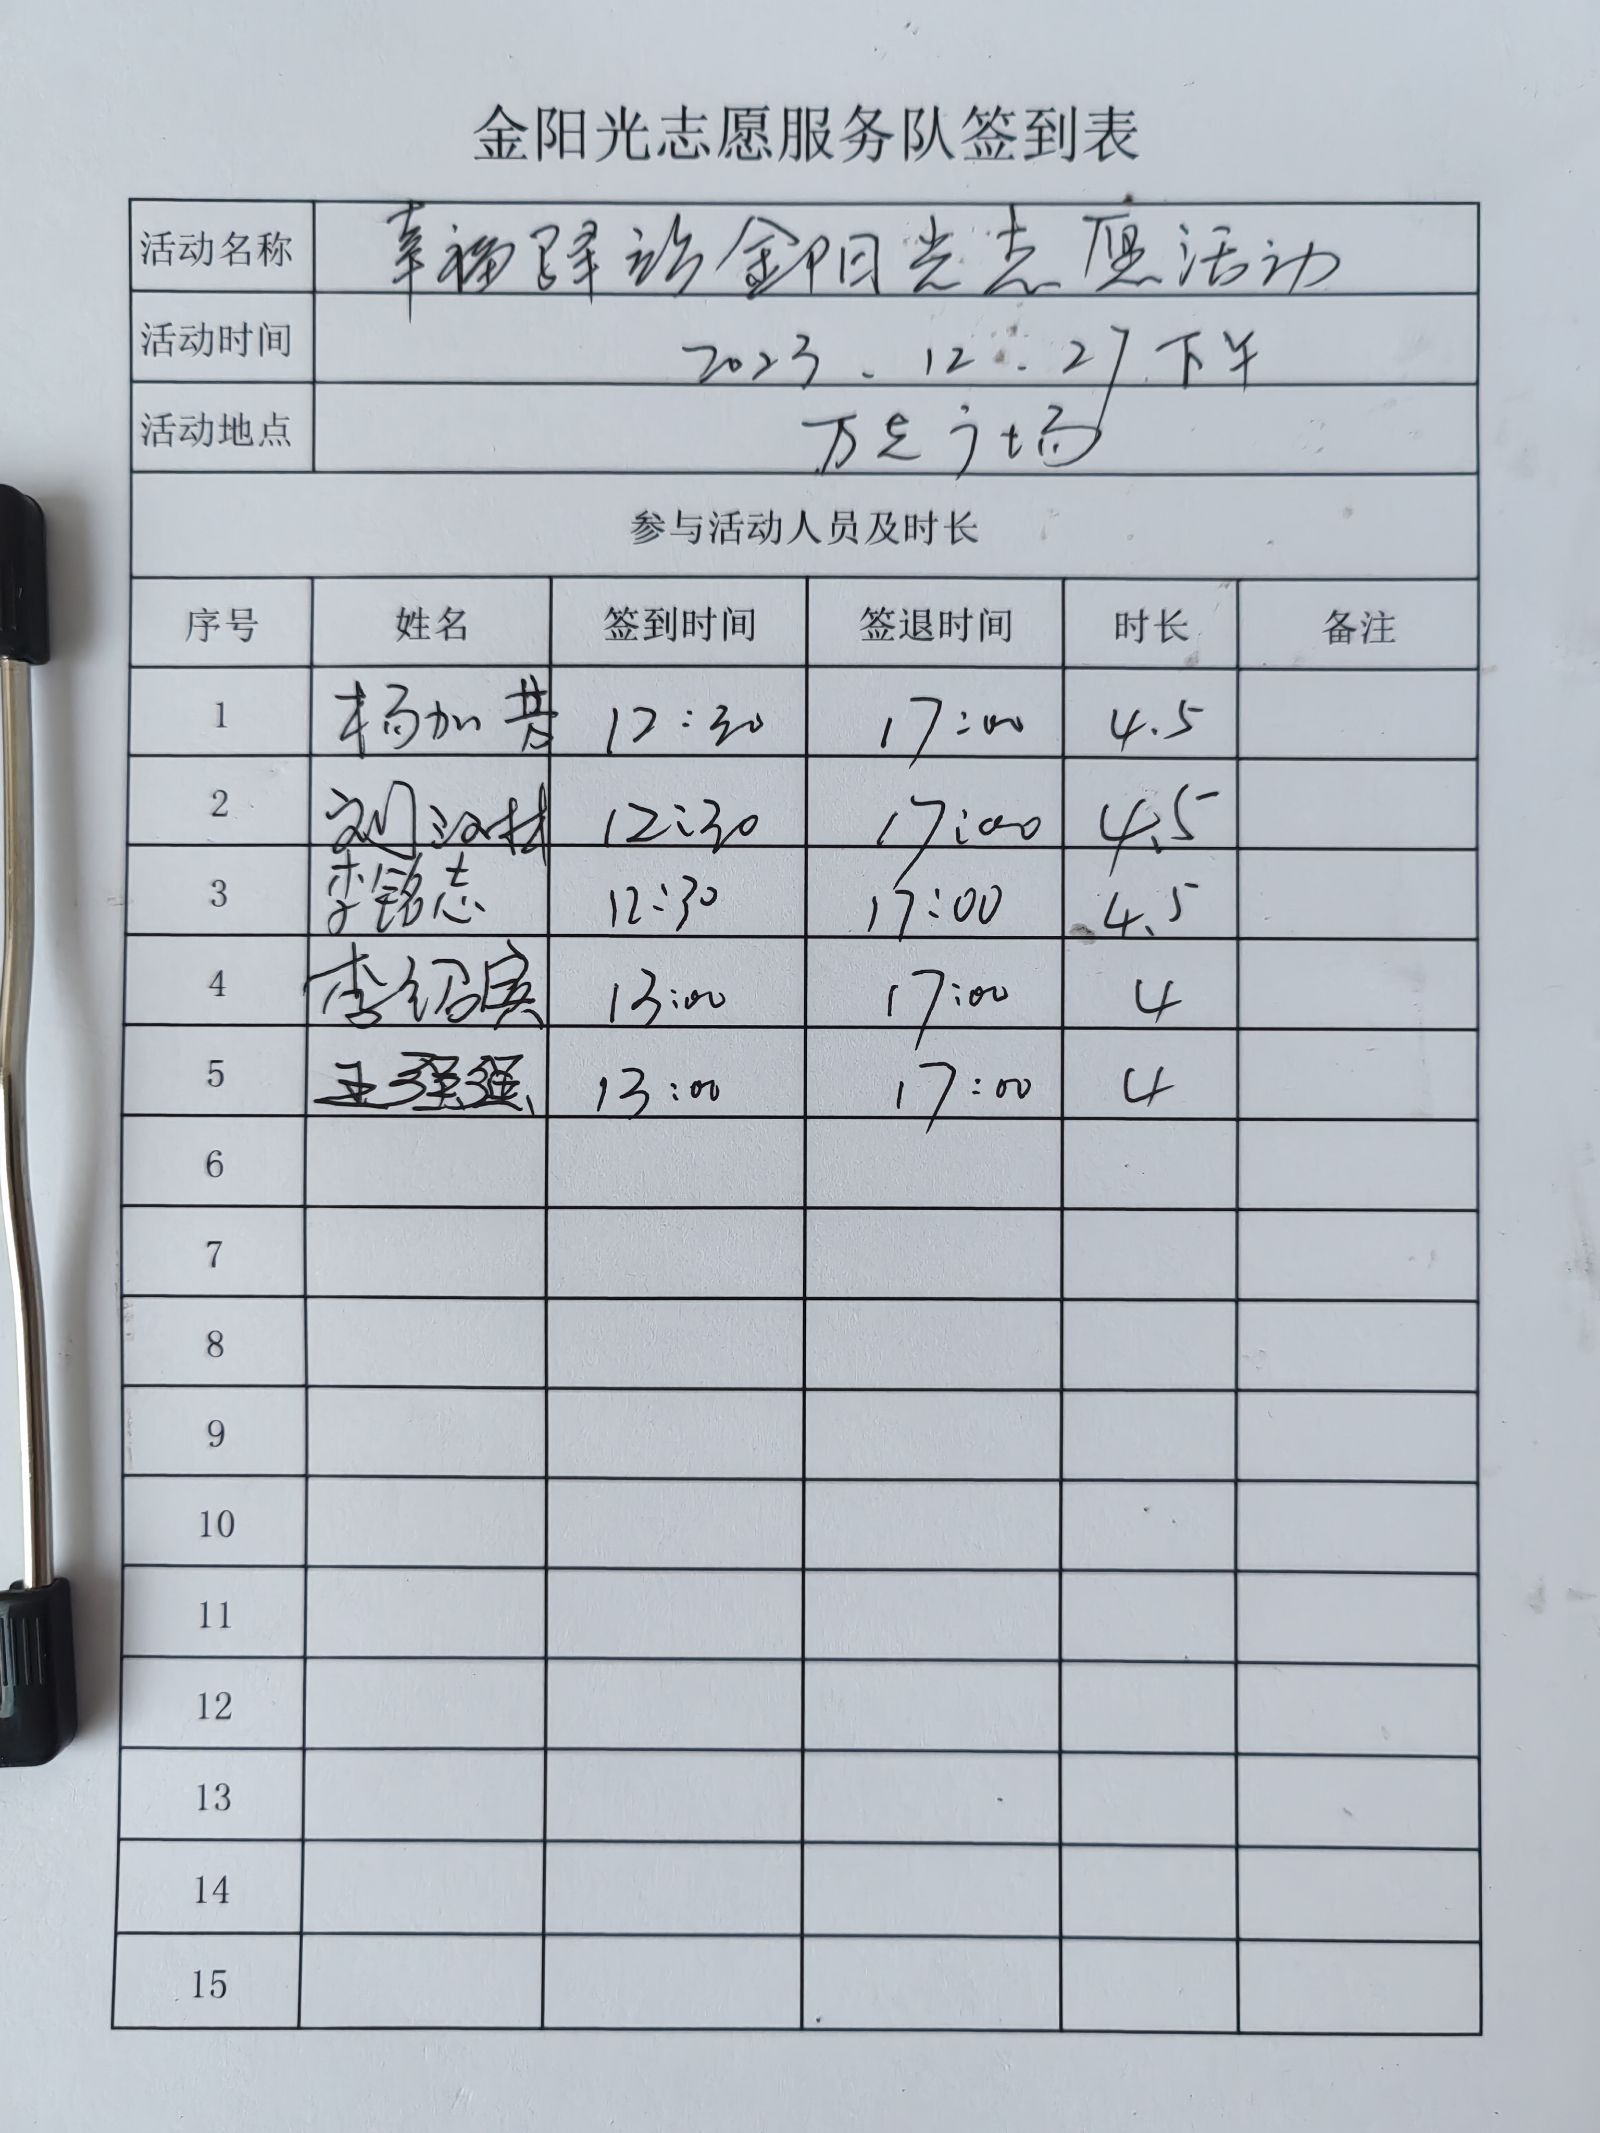 金阳光志愿服务队签到表
活动名称 幸福驿站金阳光志愿活动
活动时间 2023.12.27下午
活动地点 万达广场
参与活动人员及时长
序号 姓名 签到时间 签退时间 时长 备注
1 杨加 12:30 17:00 4.5
2 刘汉林 12:30 17:00 4.5
3 李铭志 12:30 17:00 4.5
4 李绍宾 13:00 17:00 4
5 王强强 13:00 17:00 4
6
7
8
9
10
11
12
13
14
15